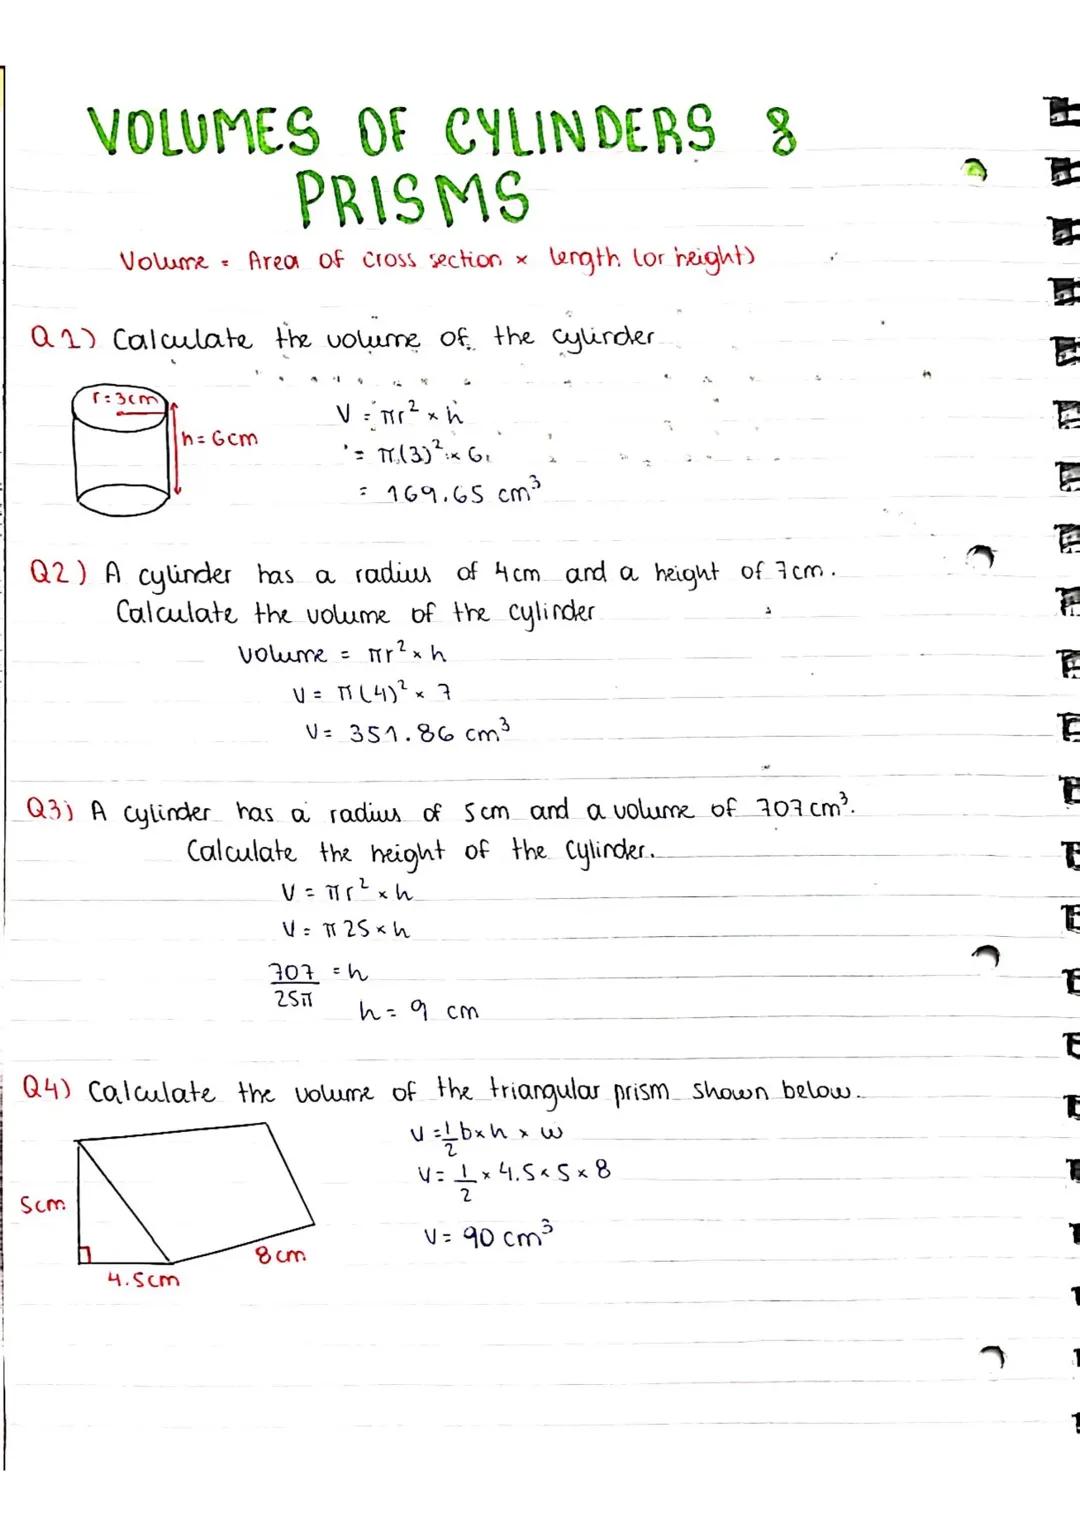 VOLUMES OF CYLINDERS &
PRISMS
Volume = Area of cross section × length (or height)
Q1) Calculate the volume of the cylinder
r=3cm
h=6cm
V = πr² × h
= π(3)² × 6
= 169.65 cm³
Q2) A cylinder has a radius of 4cm and a height of 7cm.
Calculate the volume of the cylinder
Volume = πr² × h
V = π(4)² × 7
V = 351.86 cm³
Q3) A cylinder has a radius of 5cm and a volume of 707cm³.
Calculate the height of the cylinder.
V = πr² × h
V = π25 × h
707/25π = h
h = 9 cm
Q4) Calculate the volume of the triangular prism shown below.
5cm
4.5cm
8cm
V = 1/2 b×h × w
V = 1/2 × 4.5 × 5 × 8
V = 90 cm³